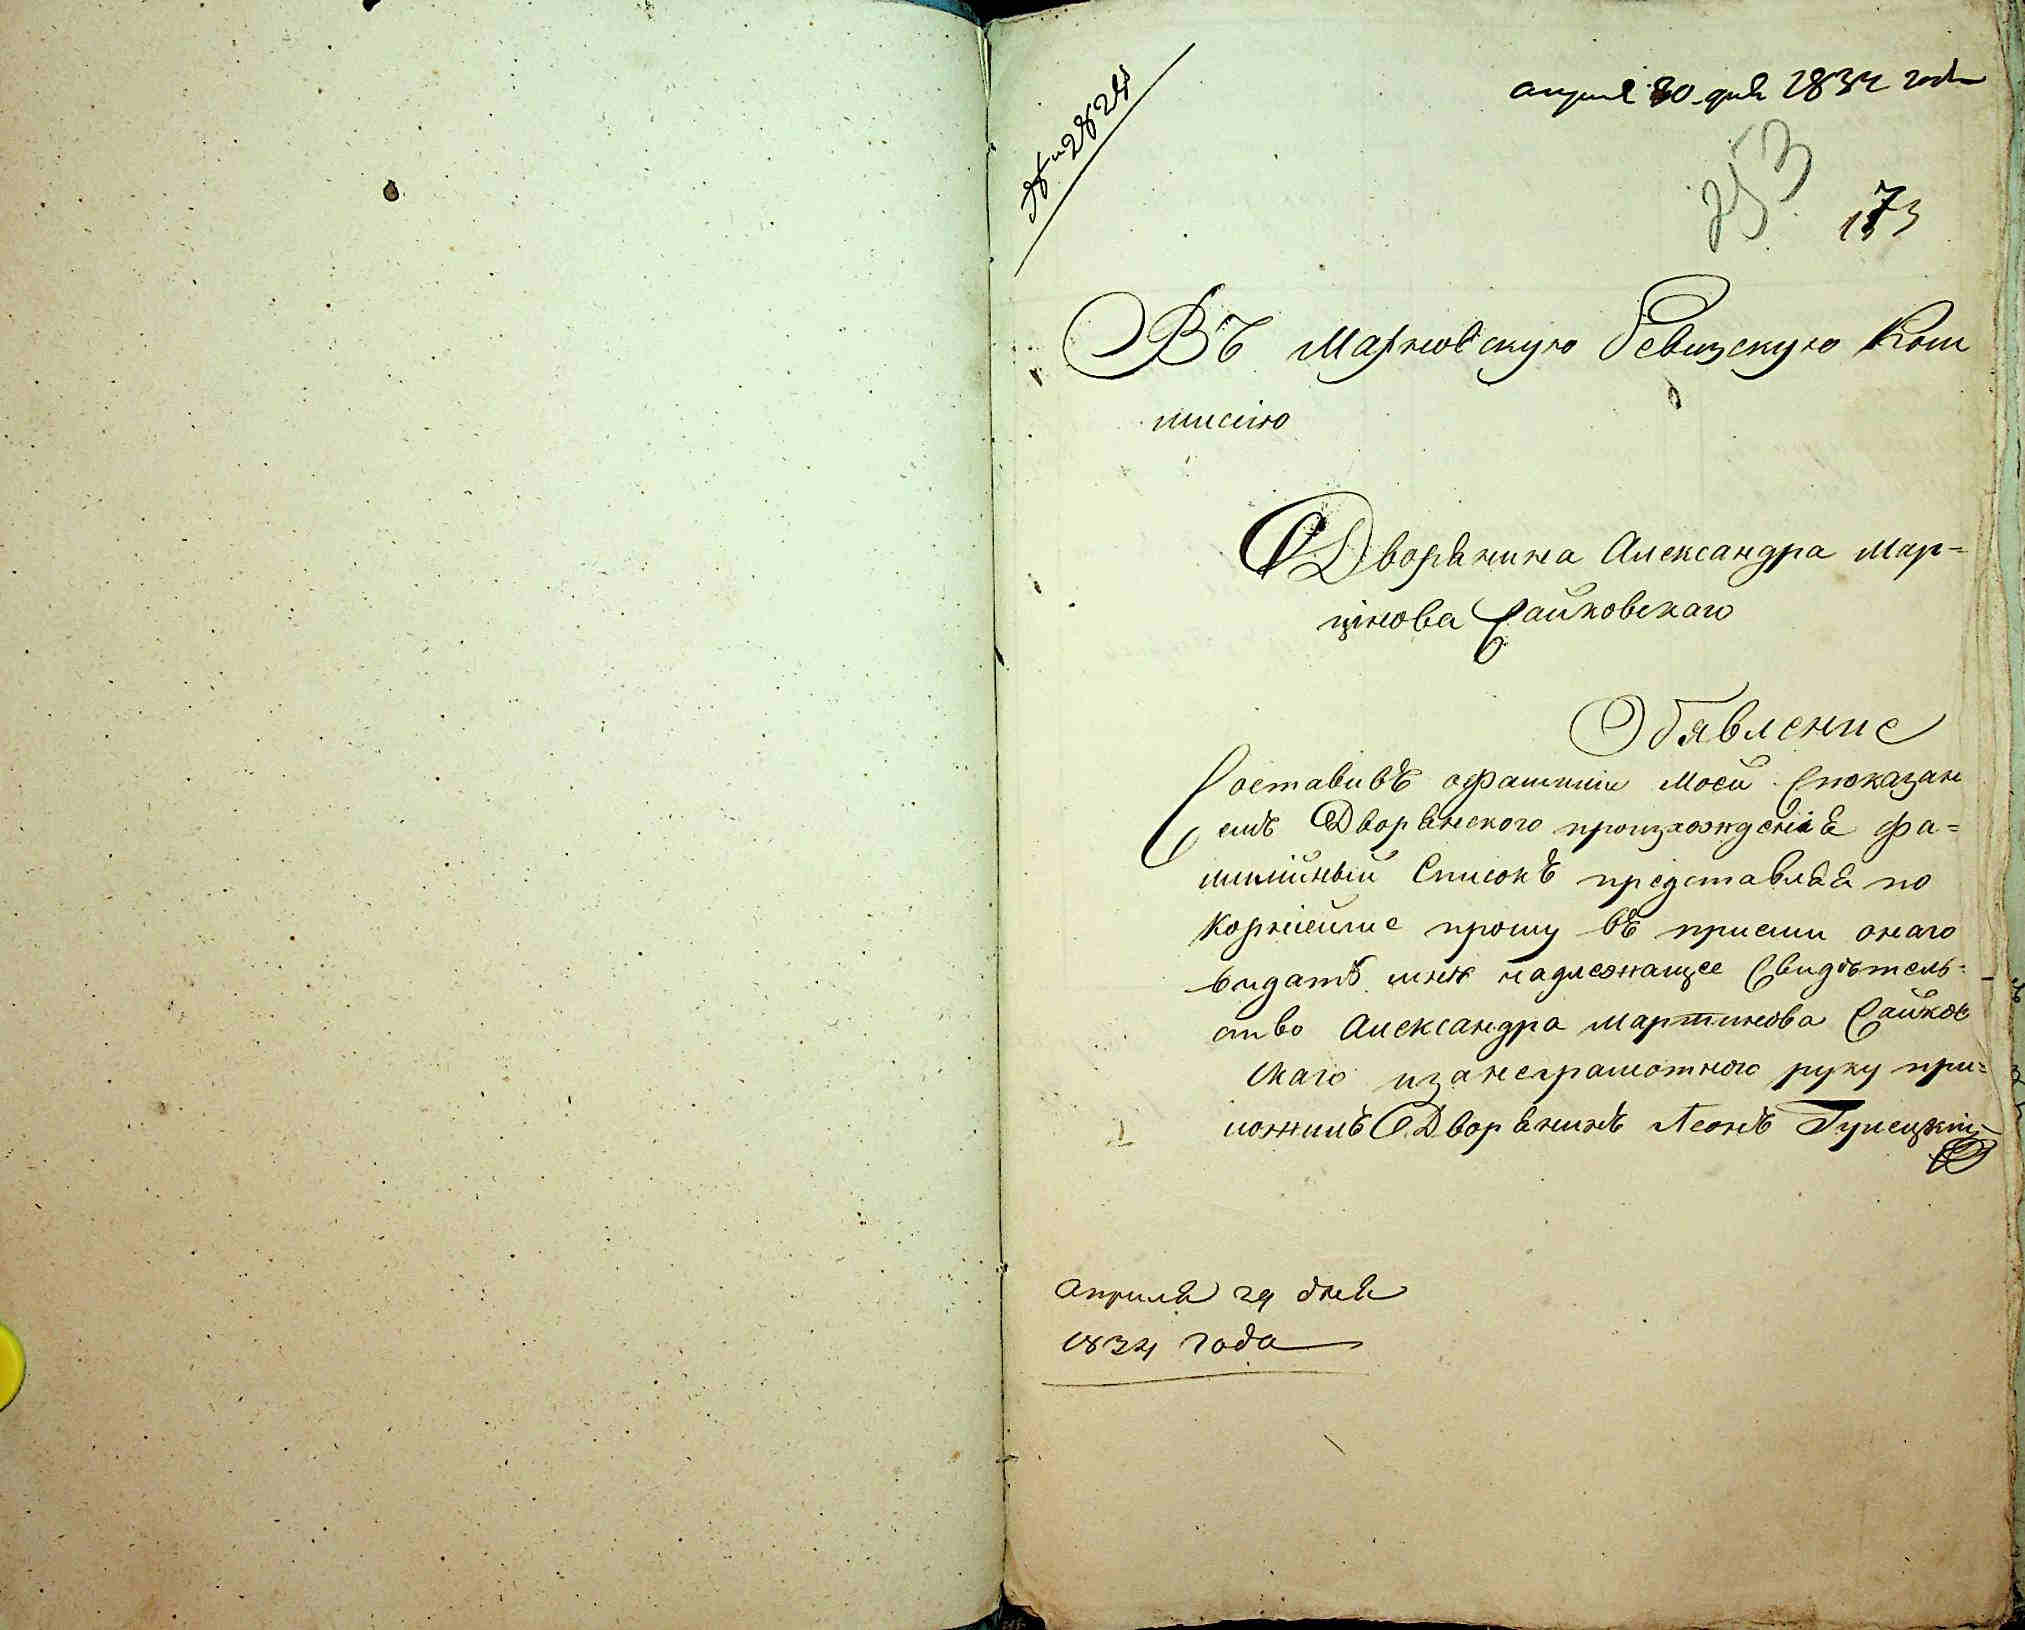 апреля 30 дня 1834 года
№ 2824
253
173
Въ Марковскую Ревизскую Ком
мисію
Дворянина Александра Мар=
цінова Сайковскаго
Обявление
Составивъ офамиліи моей Споказан
емъ Дворянского произхожденія фа=
милійный Списокъ представляя по
корнейше прошу въ приеми онаго
видать мнѣ надлежащее Свидѣтель=
ство Александра Мартинова Сайков
скаго изанеграмотного руку при=
ложилъ Дворянинъ Леонъ
апреля 29 дня
1834 года